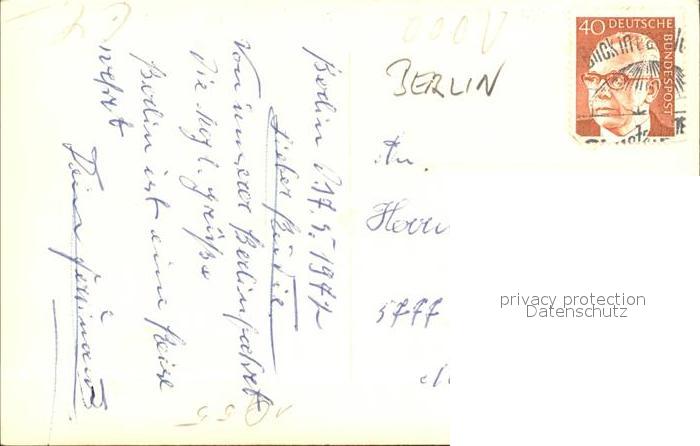 Berlin d. 17.5.1977
Lieber
Von unserer Berlinfahrt
die herzl. Grüße
Berlin ist eine Reise
wert
Dein
BERLIN
An
Herrn
5777
40 DEUTSCHE
BUNDESPOST
privacy protection
Datenschutz